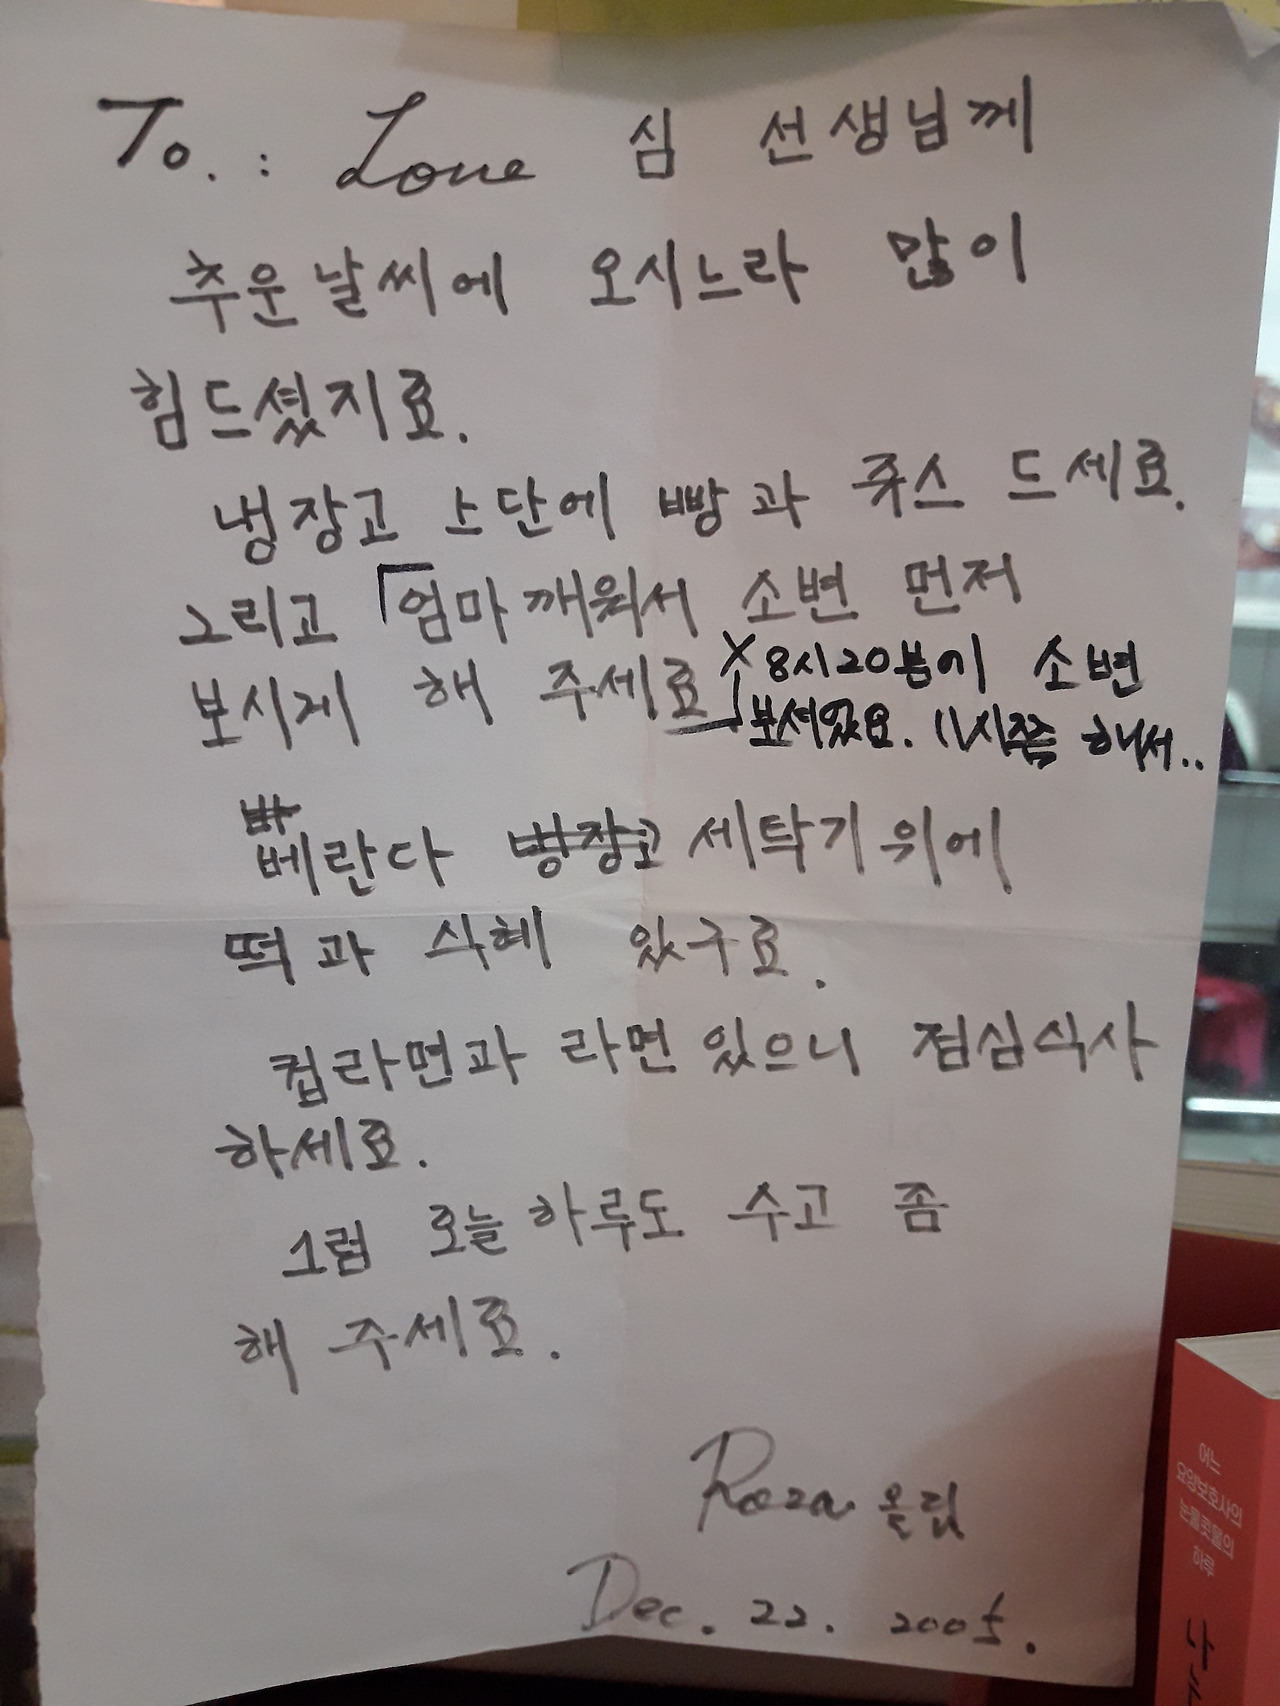 To. : Love 심 선생님께
추운날씨에 오시느라 많이
힘드셨지료.
냉장고 상단에 빵과 쥬스 드세료.
그리고 「엄마깨워서 소변 먼저
보시게 해 주세료」 X8시20분에 소변
보셔았요. 11시쯤 해서..
바
베란다 빵장고 세탁기 위에
떡과 식혜 있구료.
컵라면과 라면 있으니 점심식사
하세료.
그럼 오늘하루도 수고 좀
해 주세료.
Roza 올림
Dec. 22. 2005.
어느
요양보호사의
눈물콧물의
하루